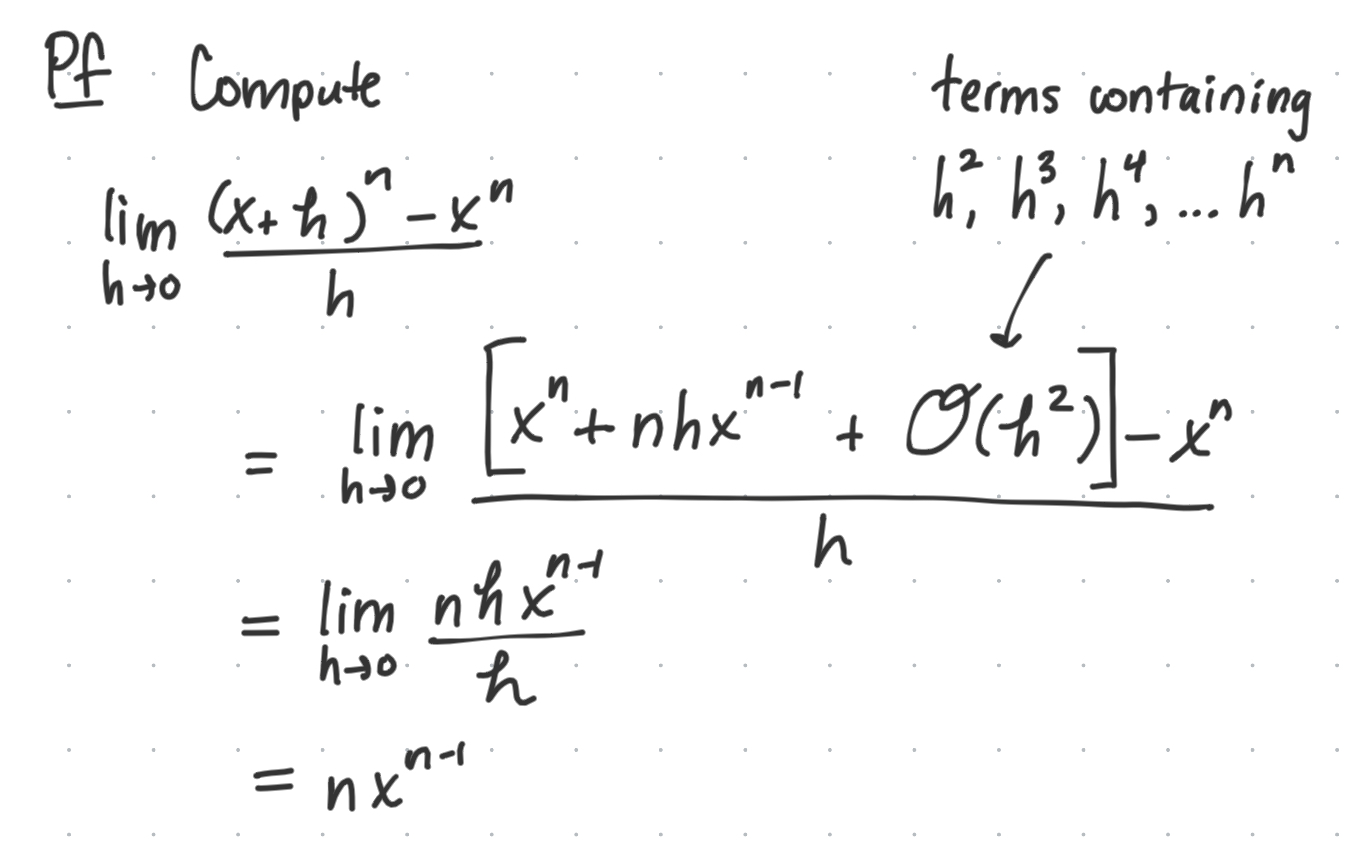 Pf Compute
terms containing
h², h³, h⁴, ... hⁿ
lim_{h→0} ((x+h)ⁿ - xⁿ)/h
= lim_{h→0} ([xⁿ + nhxⁿ⁻¹ + O(h²)] - xⁿ)/h
= lim_{h→0} (nhxⁿ⁻¹)/h
= nxⁿ⁻¹